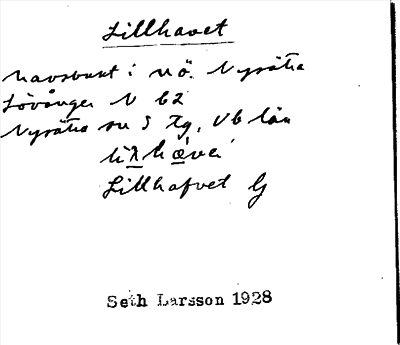 Lillhavet
havsvikt i nö. Nysätra
Lövånger N 62
Nysätra sn S tg. Vb län
Lillhafvet G
Seth Larsson 1928